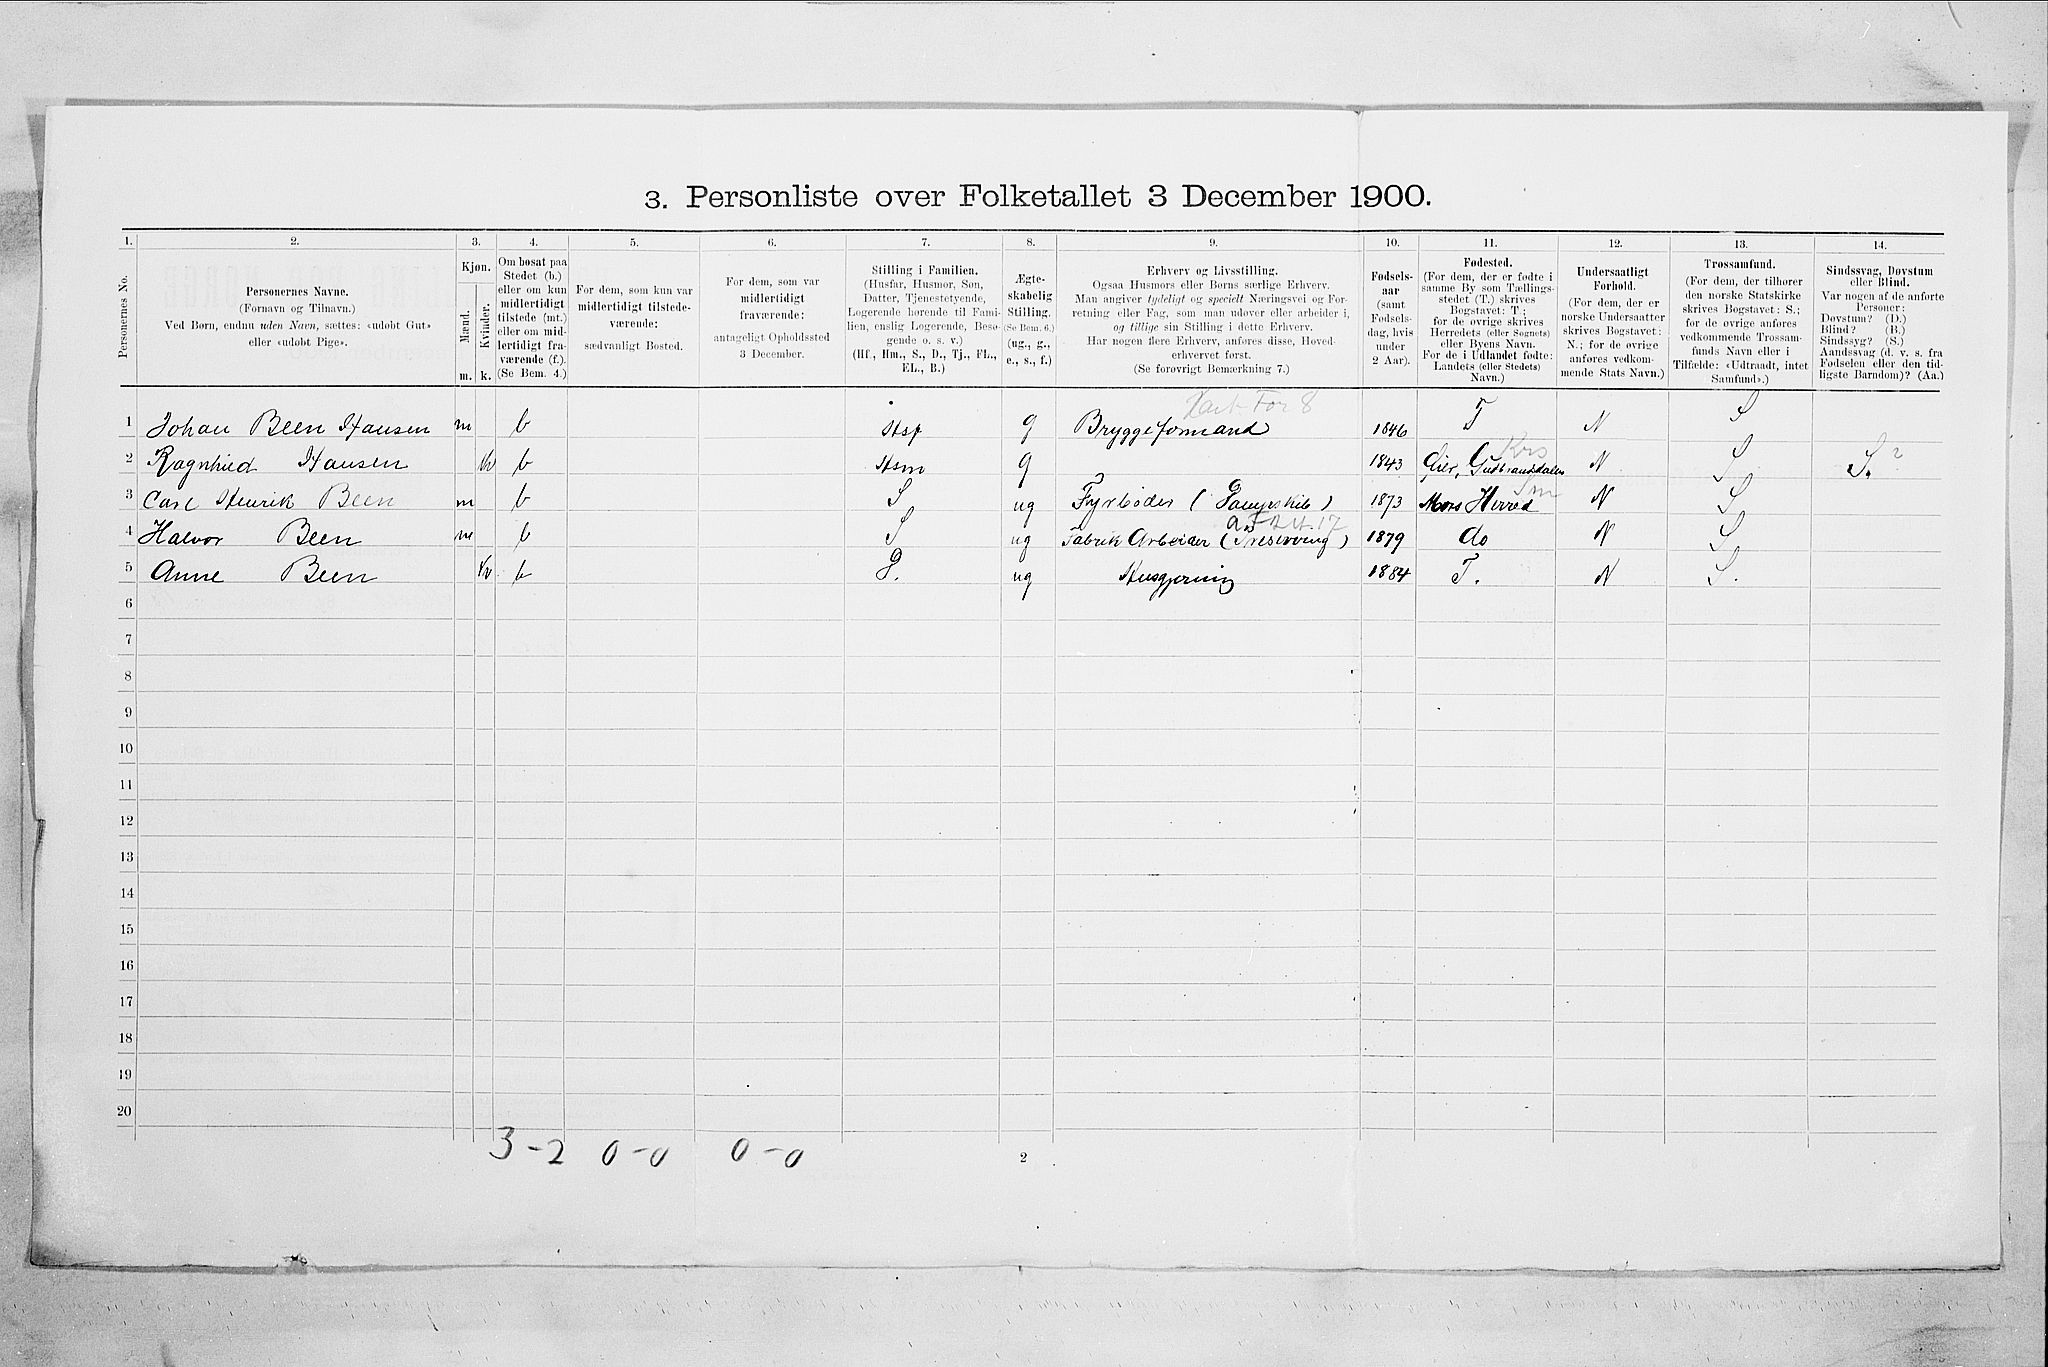 3. Personliste over Folketallet 3 December 1900.
1. 2. 3. 4. 5. 6. 7. 8. 9. 10. 11. 12. 13. 14.
Personernes No.
Personernes Navne.
(Fornavn og Tilnavn.)
Ved Børn, endnu uden Navn, sættes: «udøbt Gut»
eller «udøbt Pige».
Kjøn.
Mænd.
Kvinder.
m. k.
Om bosat paa
Stedet (b.)
eller om kun
midlertidigt
tilstede (mt.)
eller om mid-
lertidigt fra-
værende (f.).
(Se Bem. 4.)
For dem, som kun var
midlertidigt tilstede-
værende:
sædvanligt Bosted.
For dem, som var
midlertidigt
fraværende:
antageligt Opholdssted
3 December.
Stilling i Familien.
(Husfar, Husmor, Søn,
Datter, Tjenestetyende,
Logerende hørende til Fami-
lien, enslig Logerende, Besø-
gende o. s. v.)
(Hf., Hm., S., D., Tj., FL.,
EL., B.)
Ægte-
skabelig
Stilling.
(Se Bem. 6.)
(ug., g.,
e., s., f.)
Erhverv og Livsstilling.
Ogsaa Husmors eller Børns særlige Erhverv.
Man angiver tydeligt og specielt Næringsvei og For-
retning eller Fag, som man udøver eller arbeider i,
og tillige sin Stilling i dette Erhverv.
Har nogen flere Erhverv, anføres disse, Hoved-
erhvervet først.
(Se forøvrigt Bemærkning 7.)
Fødsels-
aar
(samt
Fødsels-
dag, hvis
under
2 Aar).
Fødested.
(For dem, der er fødte i
samme By som Tællings-
stedet (T.) skrives
Bogstavet: T.;
for de øvrige skrives
Herredets (eller Sognets)
eller Byens Navn.
For de i Udlandet fødte:
Landets (eller Stedets)
Navn.)
Undersaatligt
Forhold.
(For dem, der er
norske Undersaatter
skrives Bogstavet:
N.; for de øvrige
anføres vedkom-
mende Stats Navn.)
Trossamfund.
(For dem, der tilhører
den norske Statskirke
skrives Bogstavet: S.;
for de øvrige anføres
vedkommende Trossam-
funds Navn eller i
Tilfælde: «Udtraadt, intet
Samfund».)
Sindssvag, Døvstum
eller Blind.
Var nogen af de anførte
Personer:
Døvstum? (D.)
Blind? (B.)
Sindssyg? (S.)
Aandssvag (d. v. s. fra
Fødselen eller den tid-
ligste Barndom)? (Aa.)
1 Johan Been Hansen m b Hsf g Bryggeformand 1846 T N S
2 Ragnhild Hansen kv b Hsm g 1843 Gudbrandsdalen N S S. ?
3 Carl Henrik Been m b S ug Fyrbøder 1873 Mors Herred N S
4 Halvor Been m b S ug Fabrik Arbeider (Preserving) 1879 do N S
5 Anne Been kv b D. ug Husgjerning 1884 T. N S.
6
7
8
9
10
11
12
13
14
15
16
17
18
19
20
3-2 0-0 0-0
2